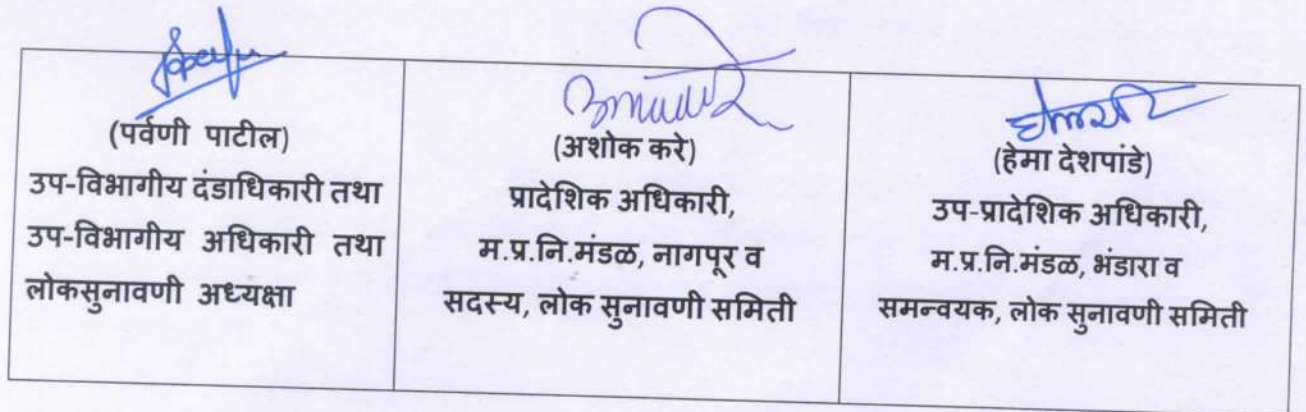 (पर्वणी पाटील)
उप-विभागीय दंडाधिकारी तथा
उप-विभागीय अधिकारी तथा
लोकसुनावणी अध्यक्षा
(अशोक करे)
प्रादेशिक अधिकारी,
म.प्र.नि.मंडळ, नागपूर व
सदस्य, लोक सुनावणी समिती
(हेमा देशपांडे)
उप-प्रादेशिक अधिकारी,
म.प्र.नि.मंडळ, भंडारा व
समन्वयक, लोक सुनावणी समिती